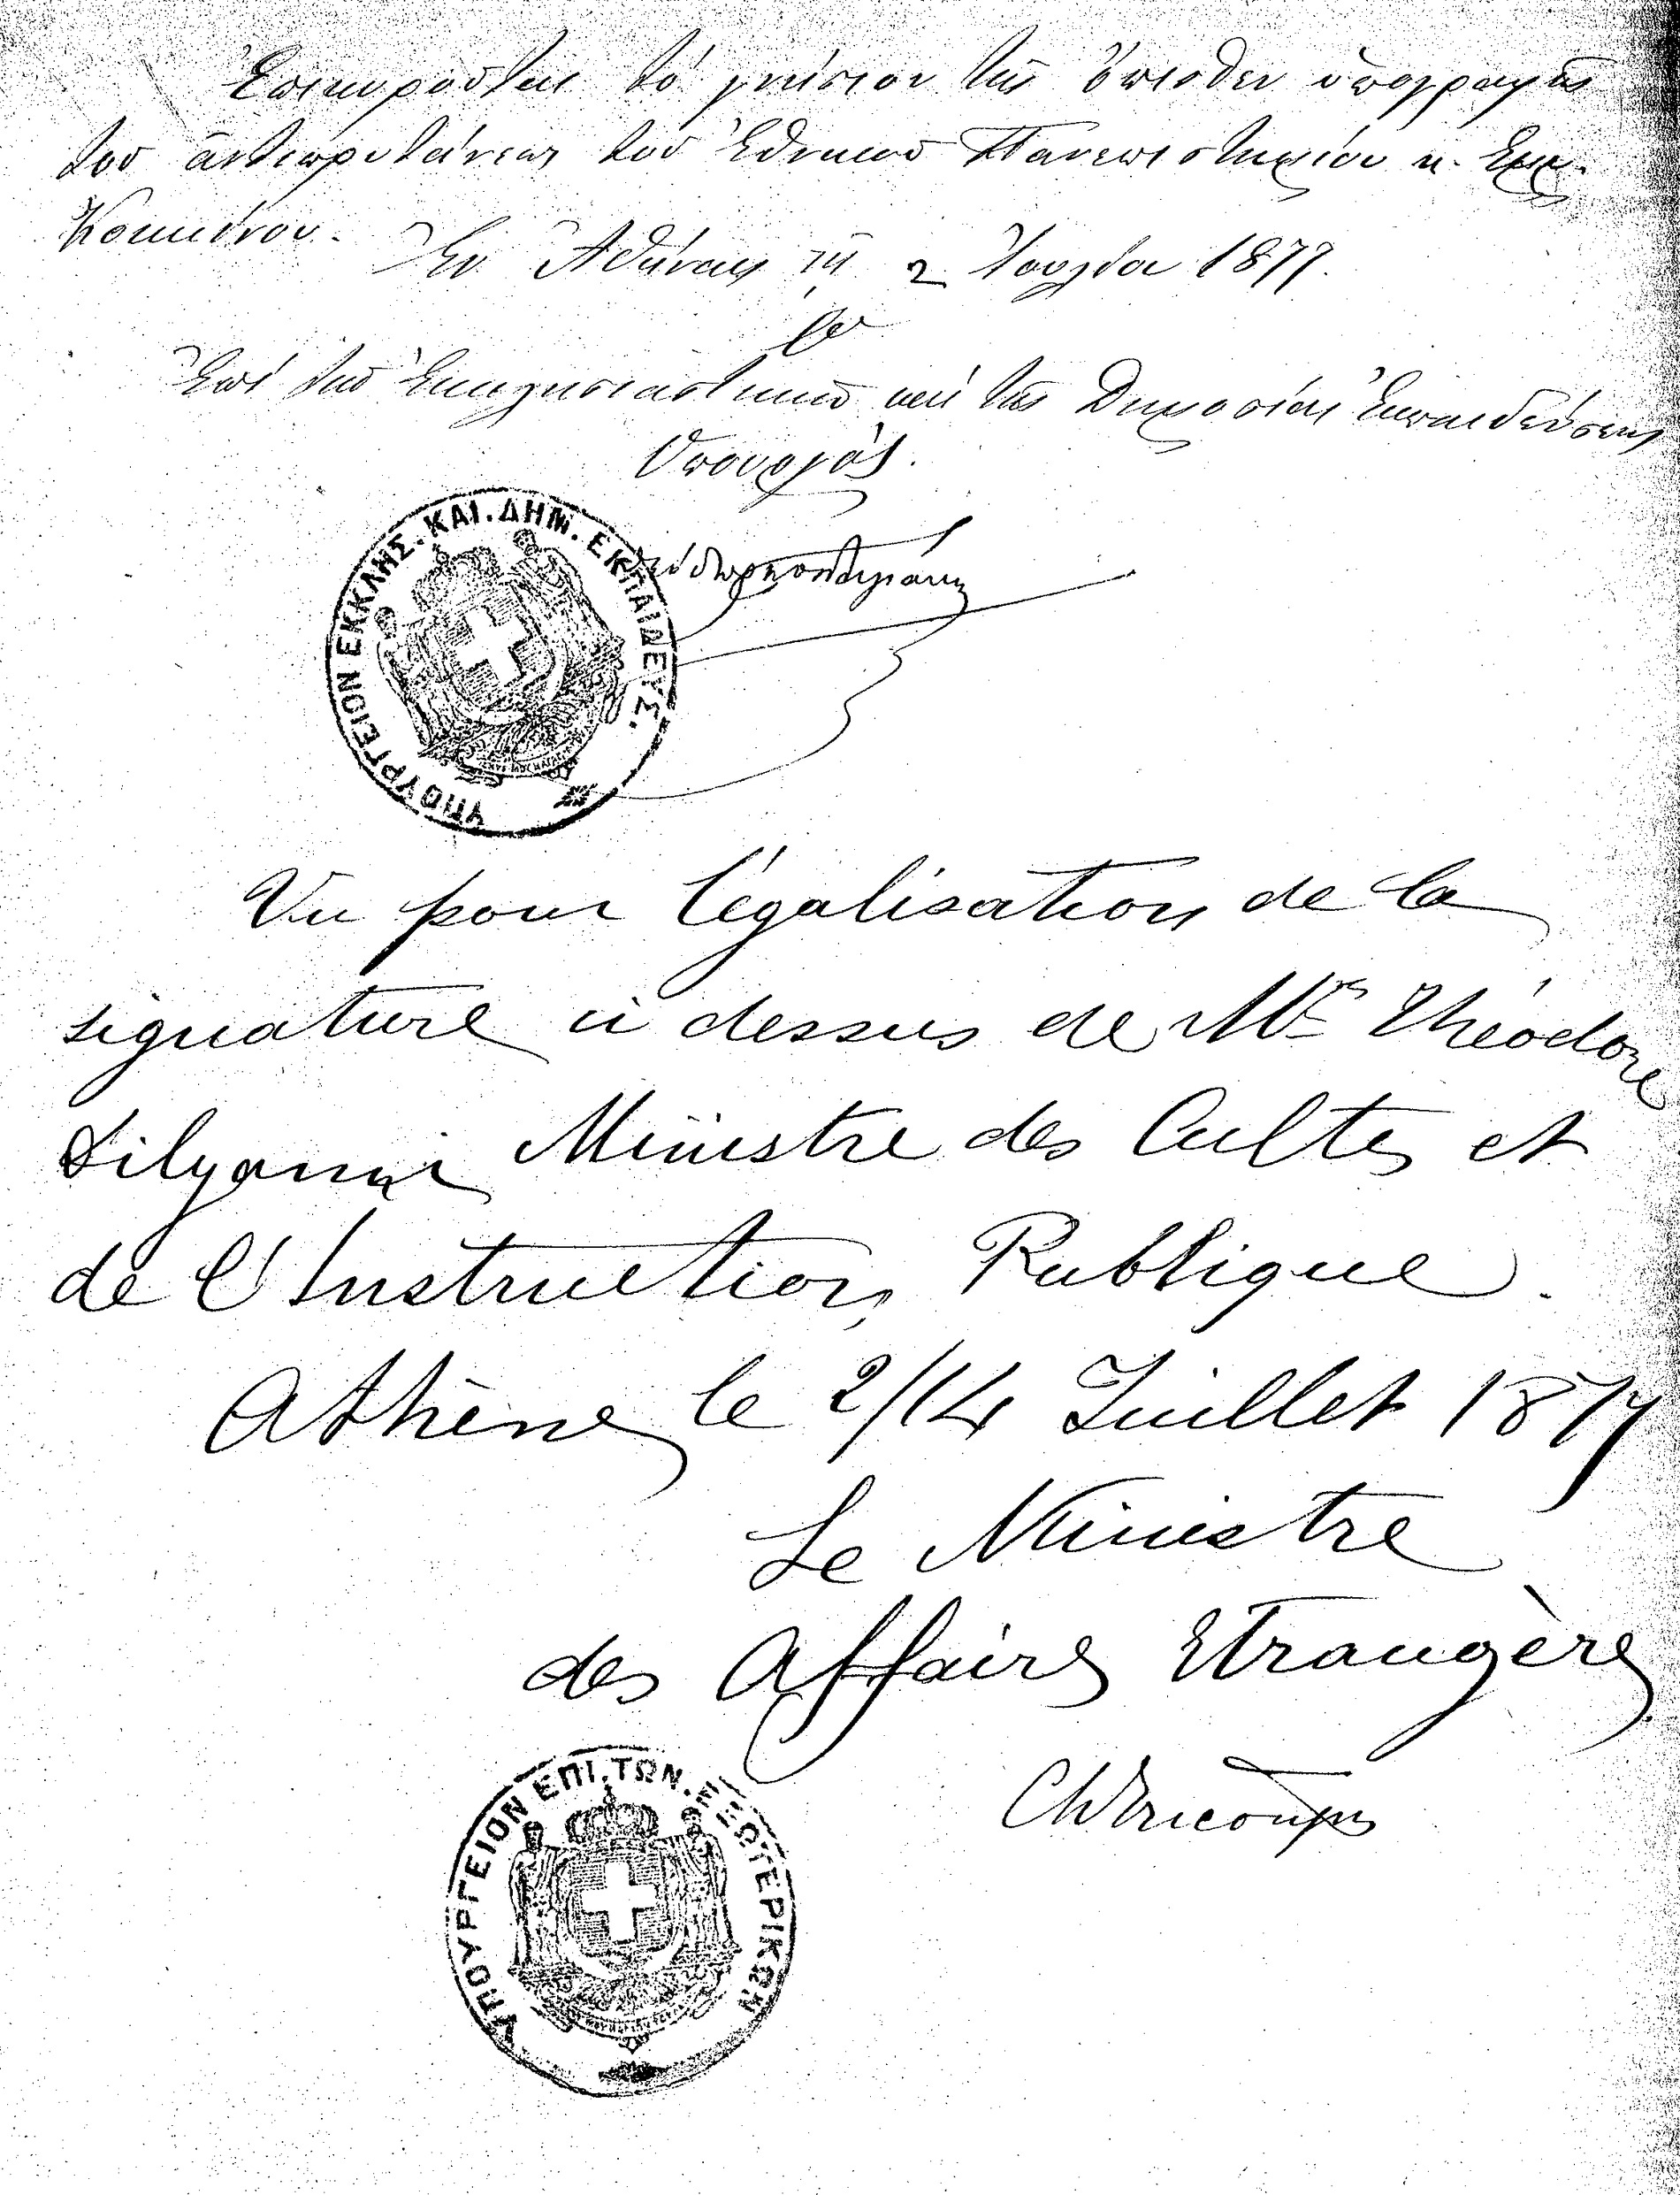 Ἐπικυροῦται τό γνήσιον τῆς ὄπισθεν ὑπογραφῆς
τοῦ ἀντιπρυτάνεως τοῦ Ἐθνικοῦ Πανεπιστημίου κ. Ἐμμ.
Κοκκίνου.
Ἐν Ἀθήναις τῇ 2 Ἰουλίου 1877.
Ὁ
Ἐπί τῶν Ἐκκλησιαστικῶν καί τῆς Δημοσίας Ἐκπαιδεύσεως
Ὑπουργός.
ΥΠΟΥΡΓΕΙΟΝ ΕΚΚΛΗΣ. ΚΑΙ. ΔΗΜ. ΕΚΠΑΙΔΕΥΣ.
Vu pour légalisation de la
signature ci dessus de Mr Théodore
Dilyanni Ministre des Cultes et
de l'Instruction Publique.
Athènes le 2/14 Juillet 1877
Le Ministre
des Affaires Etrangères
Ch Tricoupis
ΥΠΟΥΡΓΕΙΟΝ ΕΠΙ. ΤΩΝ. ΕΞΩΤΕΡΙΚΩΝ